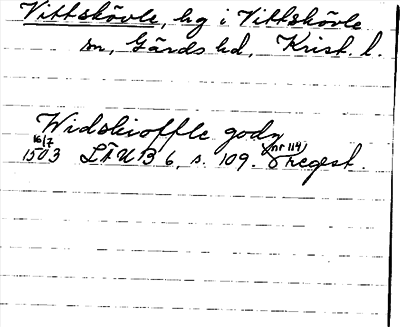 Vittskövle, hg i Vittskövle
sn, Gärds hd, Krist. l.
Widskioffle godz
16/7
1503 LÄUB 6, s. 109. (nr 114) regest.